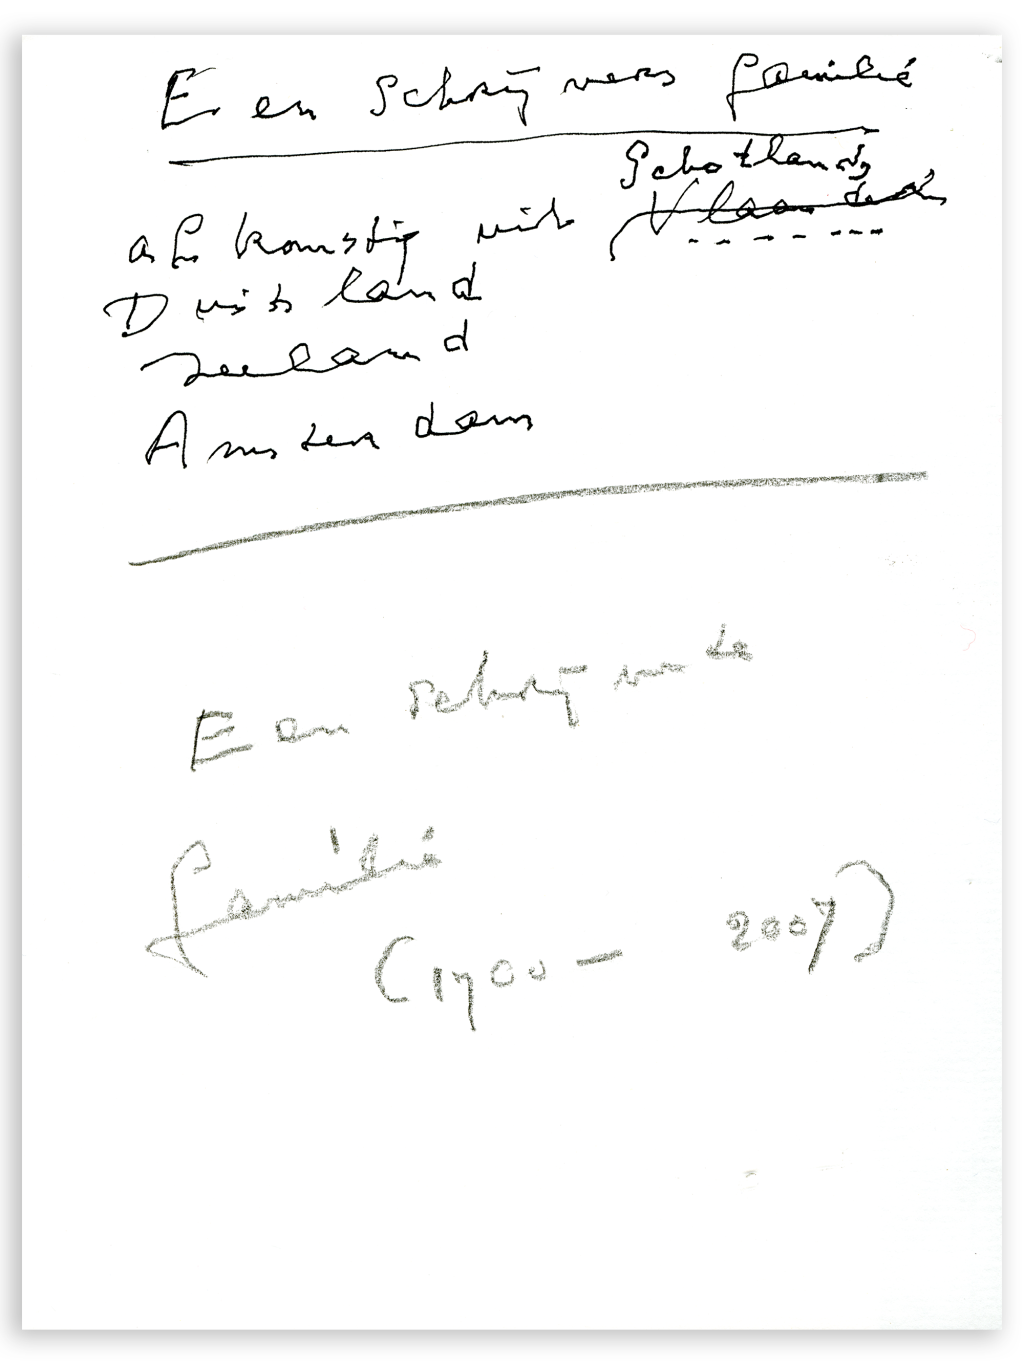 Een Schrijvers familie
Schotland
afkomstig uit Vlaanderen
Duitsland
Zeeland
Amsterdam
Een Schrijvende
familie
(1700 - 2007)